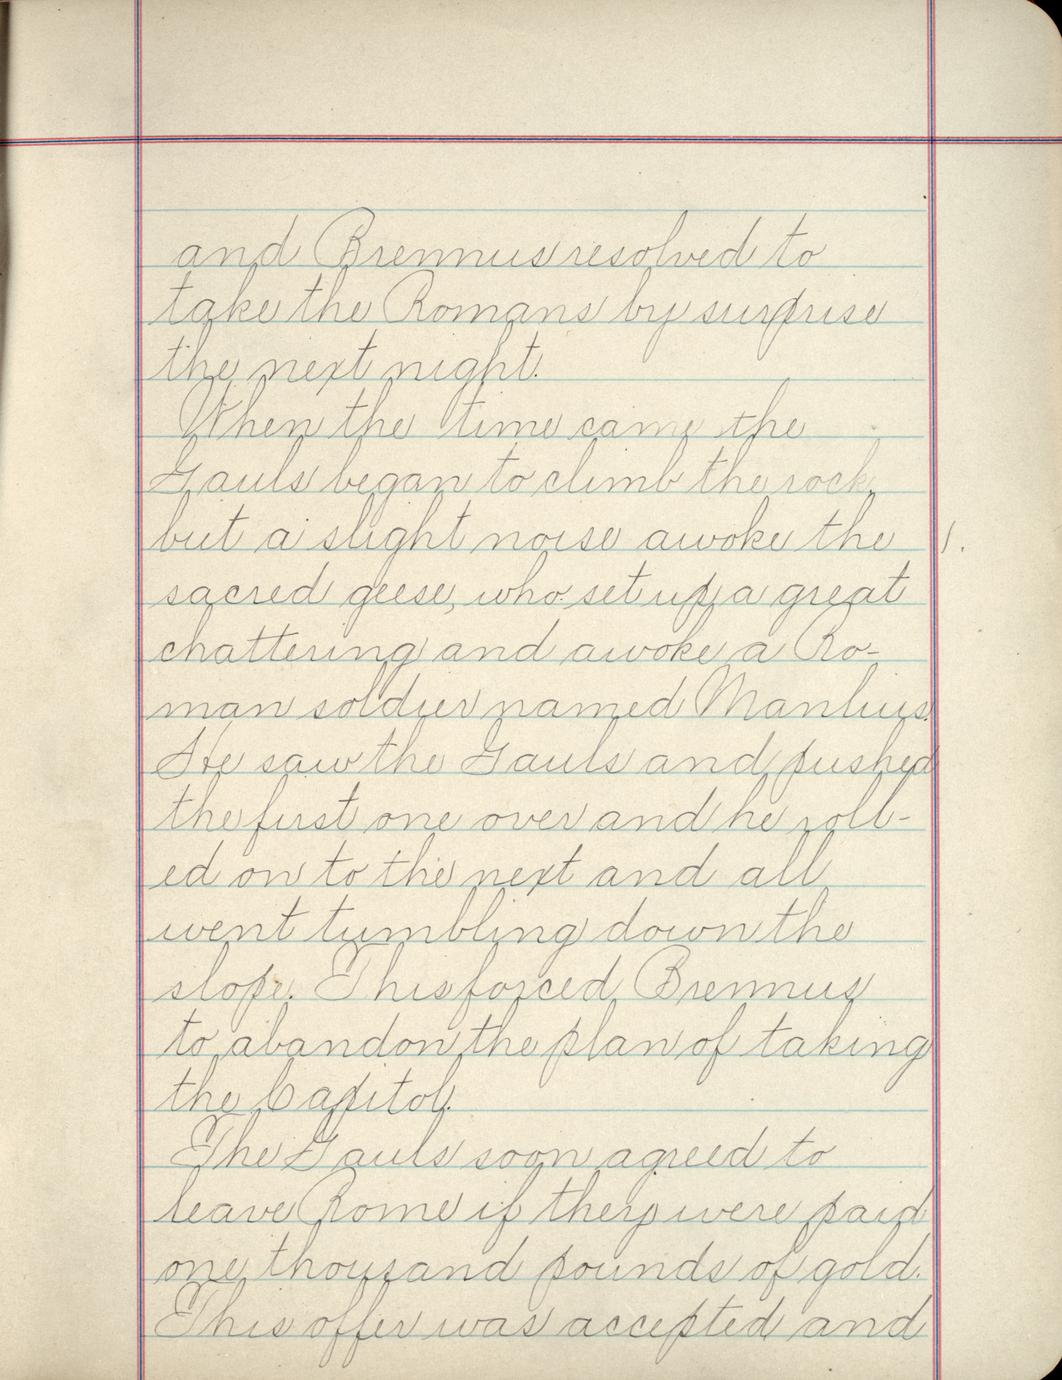 and Brennus resolved to
take the Romans by surprise
the next night.
When the time came the
Gauls began to climb the rock,
but a slight noise awoke the 1.
sacred geese, who set up a great
chattering and awoke a Ro-
man soldier named Manlius.
He saw the Gauls and pushed
the first one over and he roll-
ed on to the next and all
went tumbling down the
slope. This forced Brennus
to abandon the plan of taking
the Capitol.
The Gauls soon agreed to
leave Rome if they were paid
one thousand pounds of gold.
This offer was accepted and